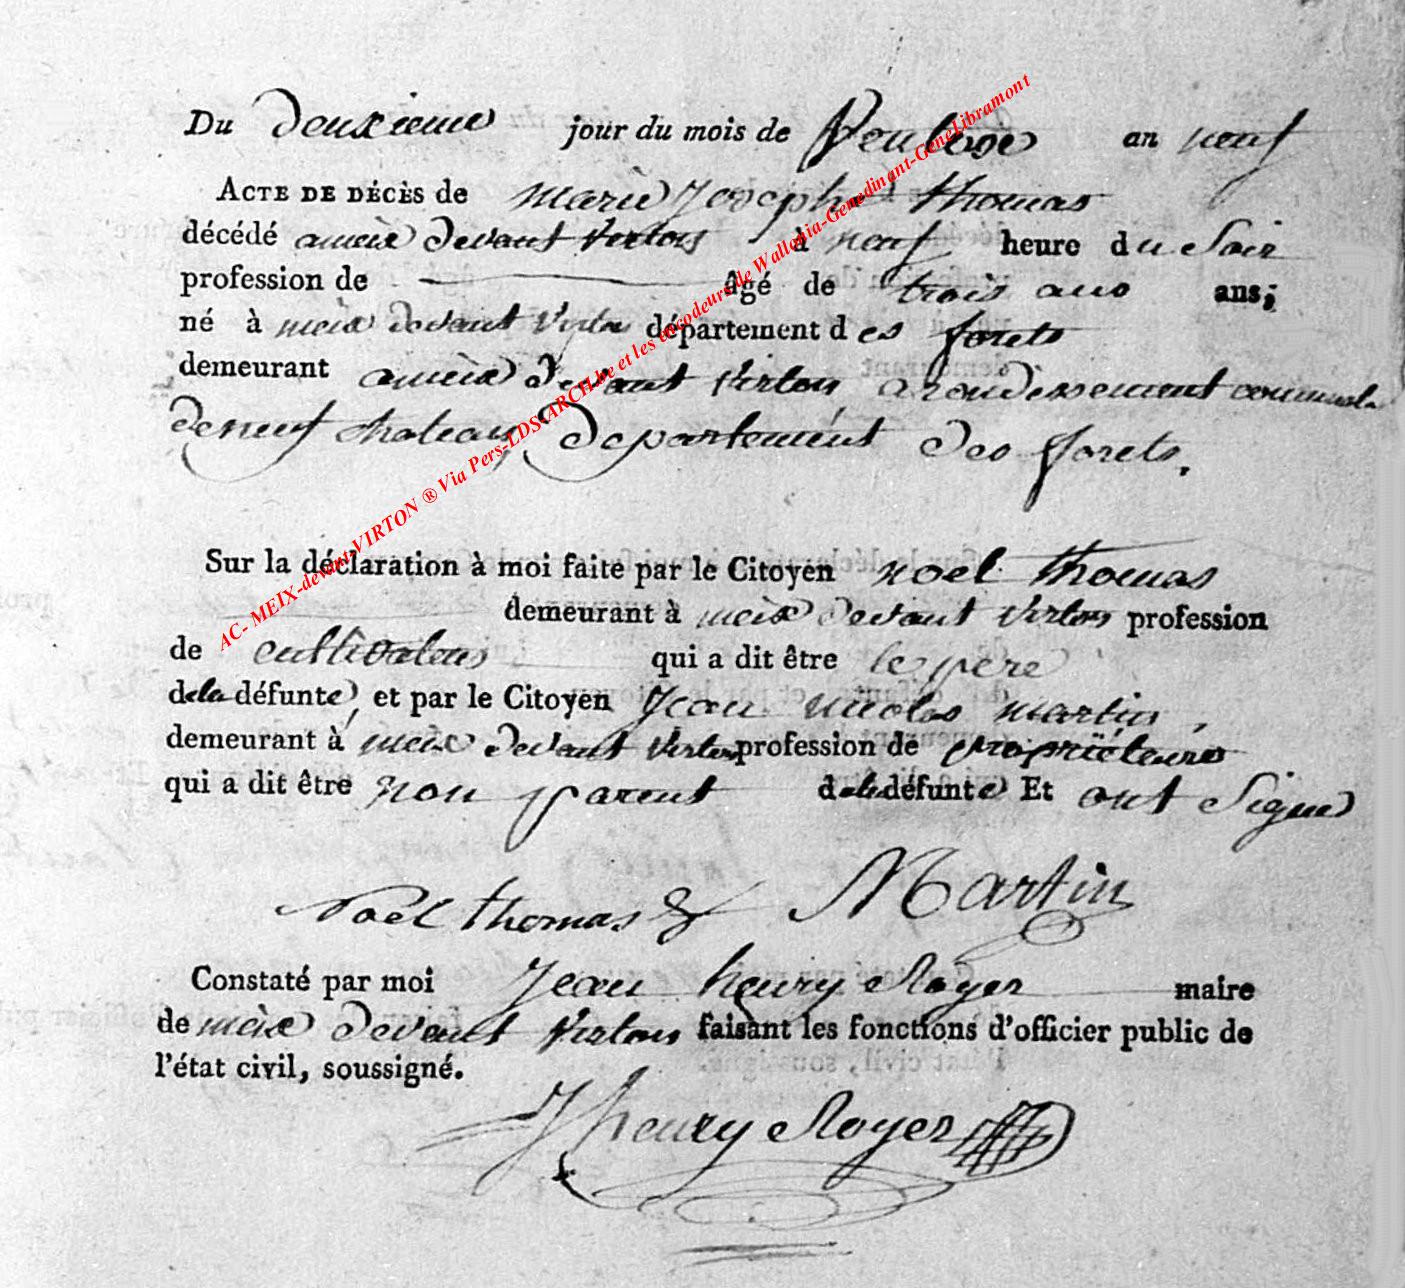 Du deuxieme jour du mois de Ventose an neuf
ACTE DE DÉCÈS de marie Josephe thomas
décédé a meix devant Virton à neuf heure du Soir
profession de âgé de trois ans ans;
né à meix devant Virton département des forets
demeurant a meix devant virton arondissement communal
de neuf chateau Departement des forets.
Sur la déclaration à moi faite par le Citoyen noel thomas
demeurant à meix devant virton profession
de cultivateur qui a dit être le pere
dela défunte, et par le Citoyen Jean nicolas martin,
demeurant à meix devant virton profession de propriètaire
qui a dit être non parent dela défunte Et ont Signe
Noël thomas Martin
Constaté par moi Jean henry Royer maire
de meix devant virton faisant les fonctions d'officier public de
l'état civil, soussigné.
J henry Royer
AC- MEIX-devant VIRTON ® Via Pers-LDS-ARCH.be et les encodeurs de Wallonia-Genedinant-GeneLibramont